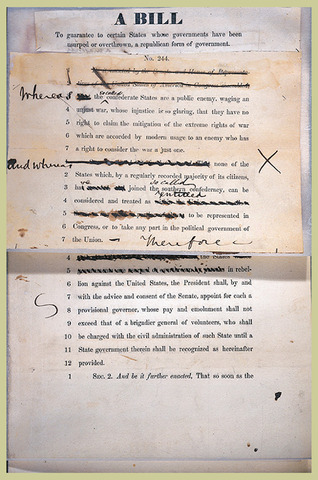 A BILL
To guarantee to certain States whose governments have been
usurped or overthrown, a republican form of government.
No. 244.
Whereas the so called confederate States are a public enemy, waging an
unjust war, whose injustice is so glaring, that they have no
right to claim the mitigation of the extreme rights of war
which are accorded by modern usage to an enemy who has
a right to consider the war a just one.
and Whereas none of the
2 States which, by a regularly recorded majority of its citizens,
3 have joined the so called southern confederacy, can be
4 considered and treated as entitled
5 to be represented in
6 Congress, or to take any part in the political government of
7 the Union. — Therefore
4
5 in rebel-
6 lion against the United States, the President shall, by and
7 with the advice and consent of the Senate, appoint for each a
8 provisional governor, whose pay and emolument shall not
9 exceed that of a brigadier general of volunteers, who shall
10 be charged with the civil administration of such State until a
11 State government therein shall be recognized as hereinafter
12 provided.
1 SEC. 2. And be it further enacted, That so soon as the